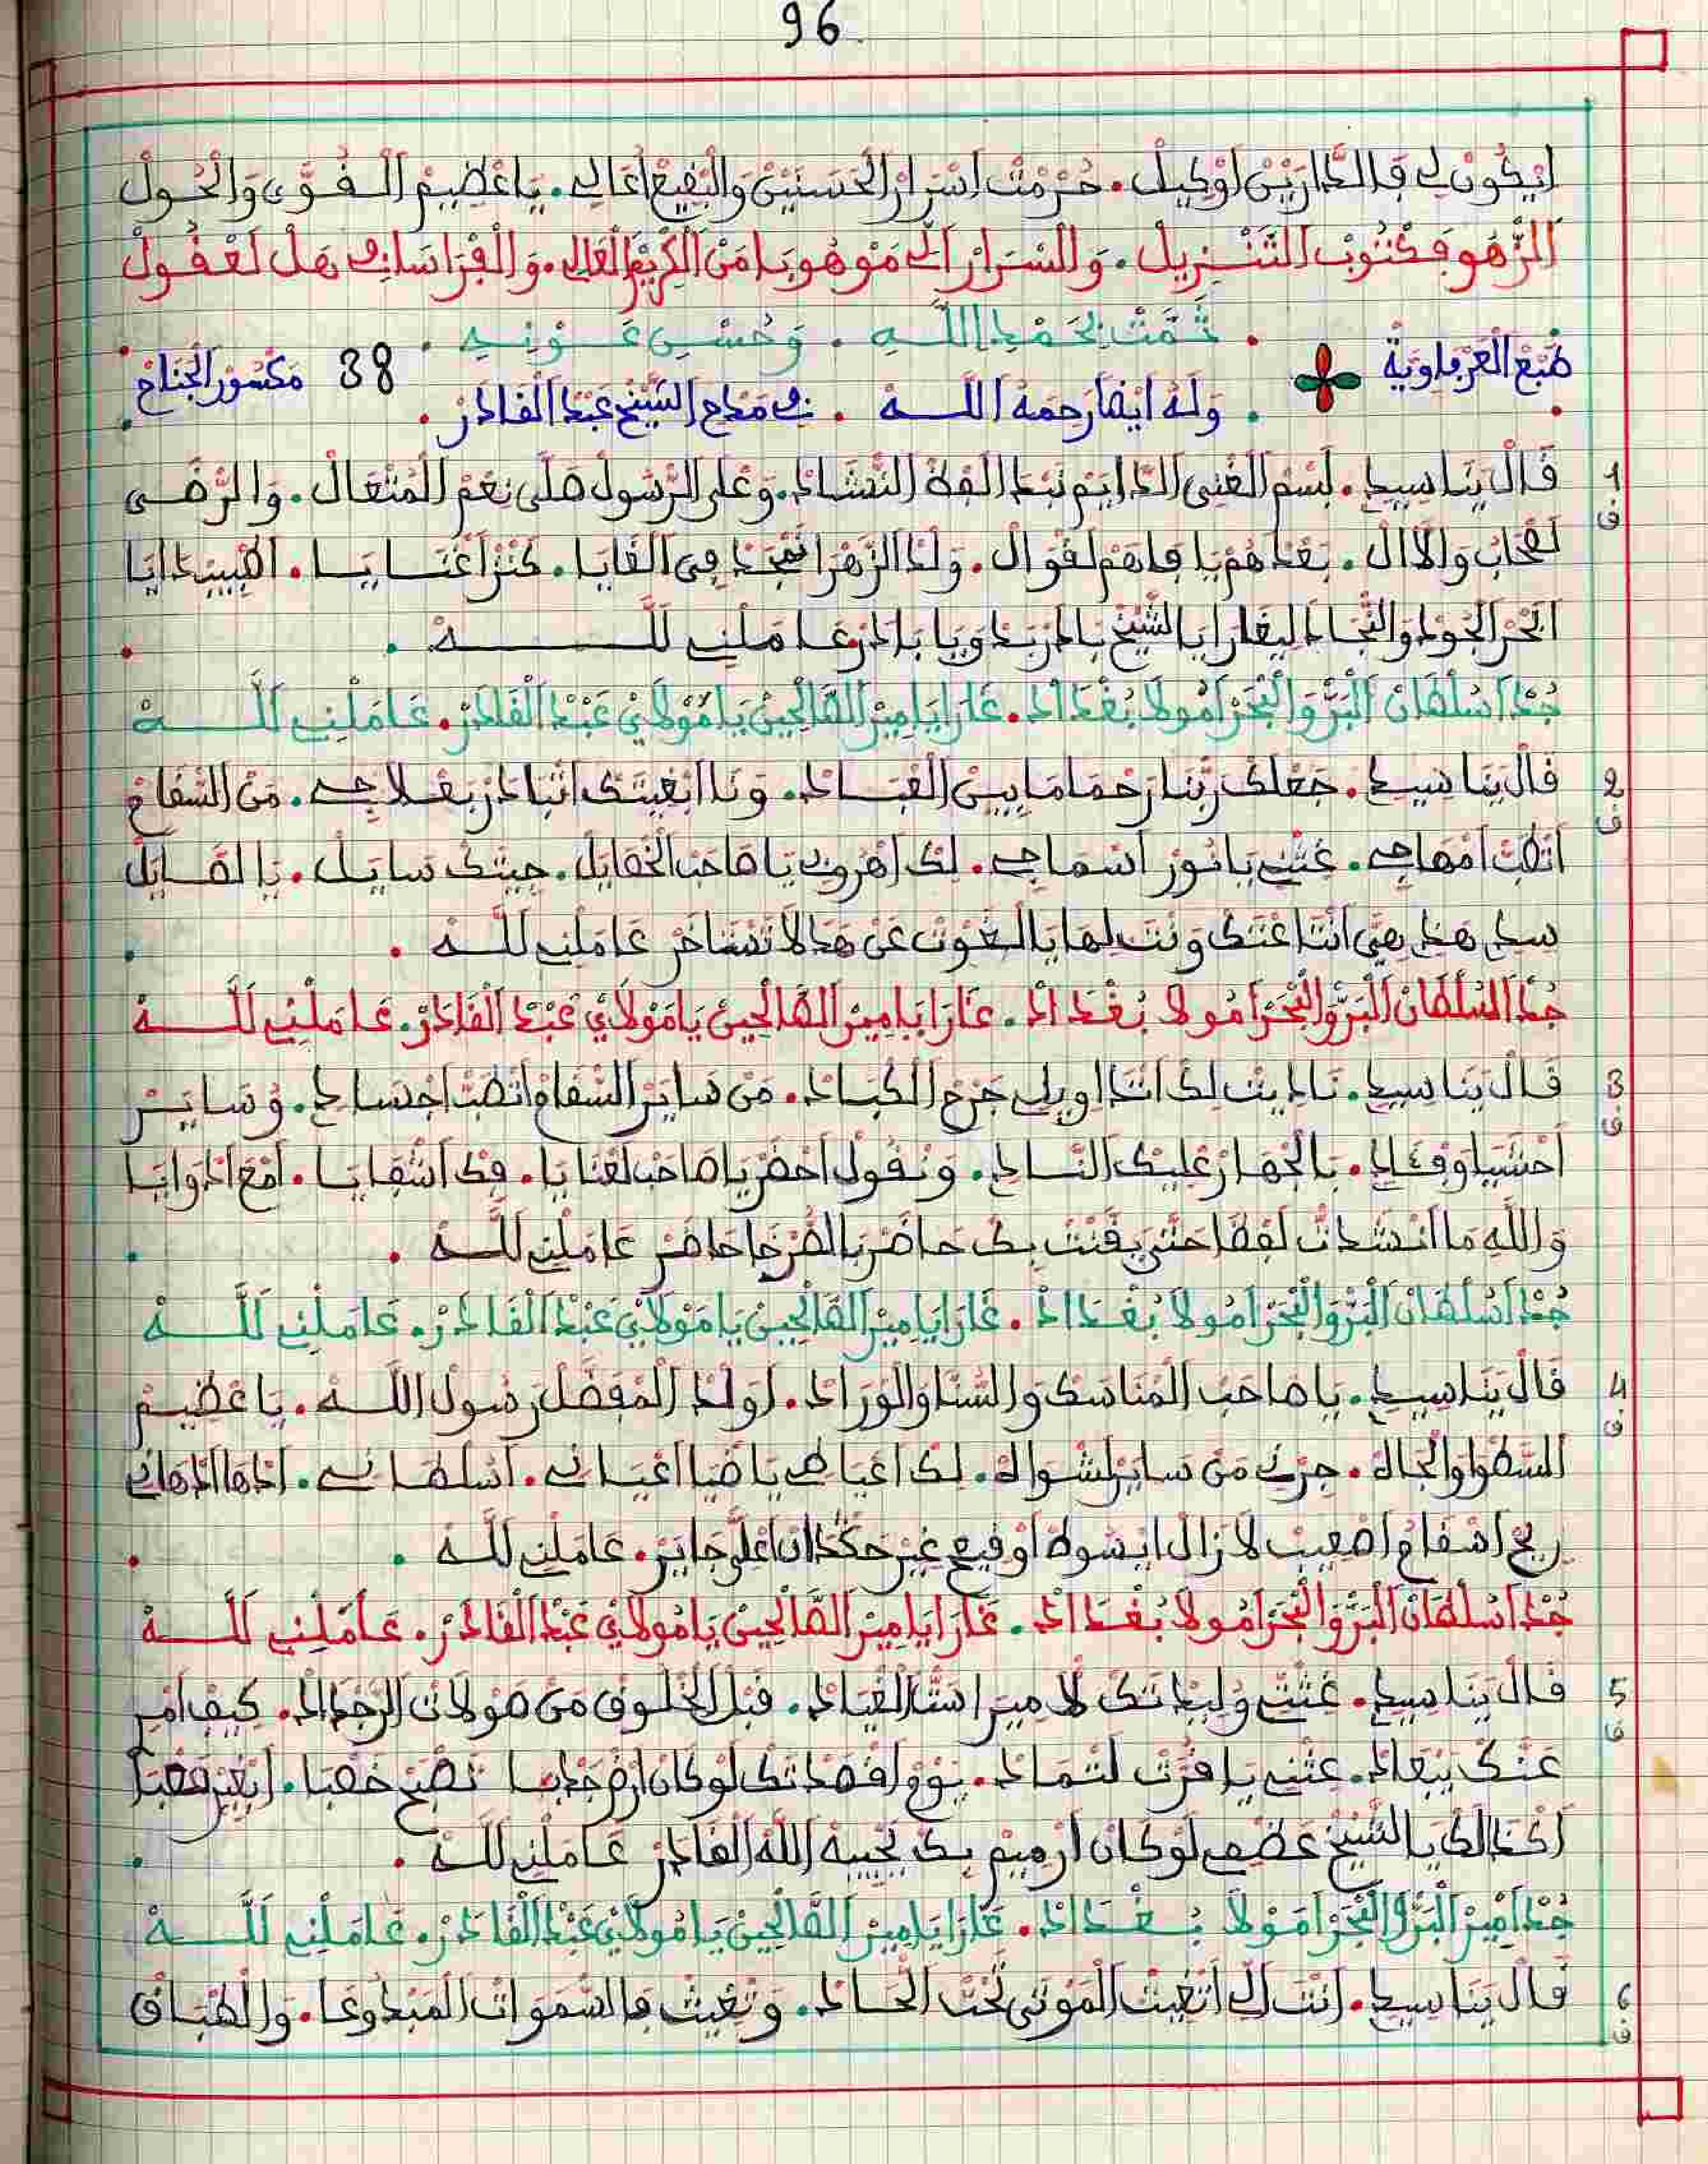 96
ايكون لي فالدارين اوكيل. حرمت اسرار الحسنين والبقيع اعالي. يا عظيم القوى والحول
الزهو فكتوب التنزيل. والسرار الى موهوبا من الكريم العالي. والفراسا في هل لعقول
. تمت بحمد الله . وحسن عونه .
طبع العرفاوية . وله ايضا رحمه الله . في مدح الشيخ عبد القادر . 38 مكسور الجناح
1 ف قال يناسيدي. لسم الغني الدايم نبدا لفة النشاد. وعلى الرسول صلى نعم المتعال. والرضى
لصحاب والال. بعدهم يا فاهم لقوال. ولد الزهرا في الغايا. كنز اغنايا.
البحر الجود والنجاد الشيخ عاملني لله .
جد اسلطان البر والبحر امولا بغداد. عارا يا مير الصالحين يا مولاي عبد القادر. عاملني لله
2 ف قال يناسيدي. جعلك ربنا رحما ما بين العباد. ونا ابغيتك اتبادر بعلاجي. من السقام
انطب امهاجي. غثني يا نور اسماجي. لك اهروبي يا صاحب الخصايل. جيتك سايل. يا الصايل
سيدي هذي هي انتاعتك ونت لها يا الغوث عن هذا لا تستاخر عاملني لله .
جد السلطان البر والبحر امولا بغداد. عارا يا مير الصالحين يا مولاي عبد القادر. عاملني لله
3 ف قال يناسيدي. ناديت لك اتداويلي جرح الكباد. من ساير السقام اتطب اجسادي. وساير
احشيا وفئادي. بالجهار عليك انادي. ونقول احضر يا صاحب لعنايا. فك اشقايا. امع ادوايا
والله ما انشدت لفظا حتى يقنت بك حاضر بالفرجا حاضر عاملني لله .
جد اسلطان البر والبحر امولا بغداد. عارا يا مير الصالحين يا مولاي عبد القادر. عاملني لله
4 ف قال يناسيدي. يا صاحب المناسك والسنا والوراد. اولد المفضل رسول الله. يا عظيم
السطوا والجاه. جرني من ساير لشواه. لك اعياطي يا ضيا اعياني. اسلطاني. ادها ادهاني
ريح اسقام اصعيب لا زال ايشوط اوفيح غير حكذا ان اعلي جاير. عاملني لله .
جد اسلطان البر والبحر امولا بغداد. عارا يا مير الصالحين يا مولاي عبد القادر. عاملني لله
5 ف قال يناسيدي. غثني وليداتك لامير استا لغياد. قبل الخلوق من صولات الرجداد. كيف امر
عنك يبعاد. غثني يا فرت لثماد. يوم اقصدتك لوكان ارض جدبا تصبح خصبا.
اكذالك يا الشيخ عضمي لوكان ارميم بك يحييه الله القادر عاملني لله .
جد امير البر والبحر امولا بغداد. عارا يا مير الصالحين يا مولاي عبد القادر. عاملني لله
6 ف قال يناسيدي. انت الي اتغيث الموتى تحت الحاد. وتغيث فالسموات المبدوعا. والطباق